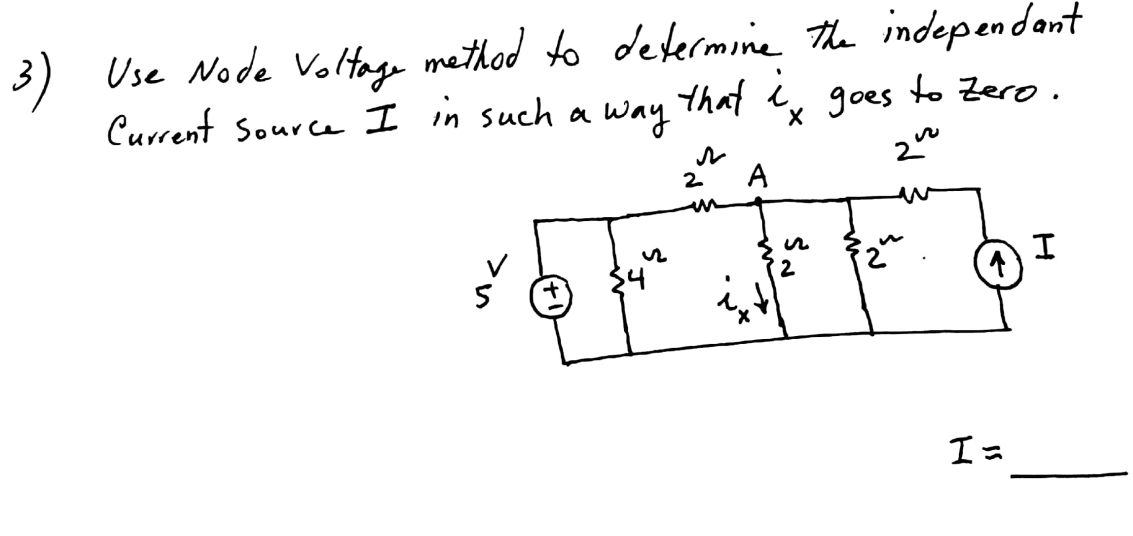 3) Use Node Voltage method to determine the independant
Current Source I in such a way that ix goes to zero.
2Ω
2Ω
A
5V
+
−
4Ω
ix
2Ω
2Ω
I
I = ____